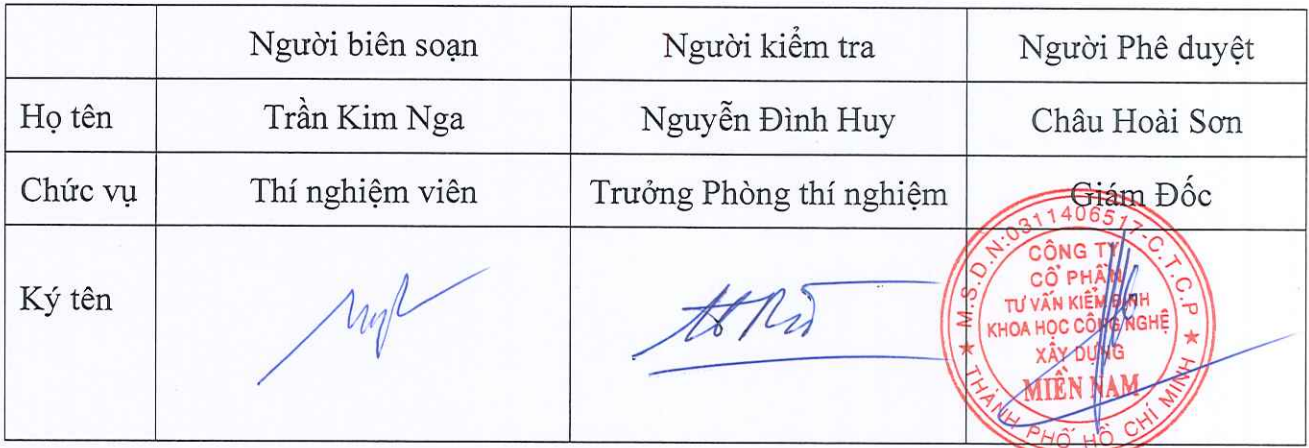 Người biên soạn Người kiểm tra Người Phê duyệt
Họ tên Trần Kim Nga Nguyễn Đình Huy Châu Hoài Sơn
Chức vụ Thí nghiệm viên Trưởng Phòng thí nghiệm Giám Đốc
Ký tên
M.S.D.N:0311406517-C.T.C.P
CÔNG TY
CỔ PHẦN
TƯ VẤN KIỂM ĐỊNH
KHOA HỌC CÔNG NGHỆ
XÂY DỰNG
MIỀN NAM
THÀNH PHỐ HỒ CHÍ MINH